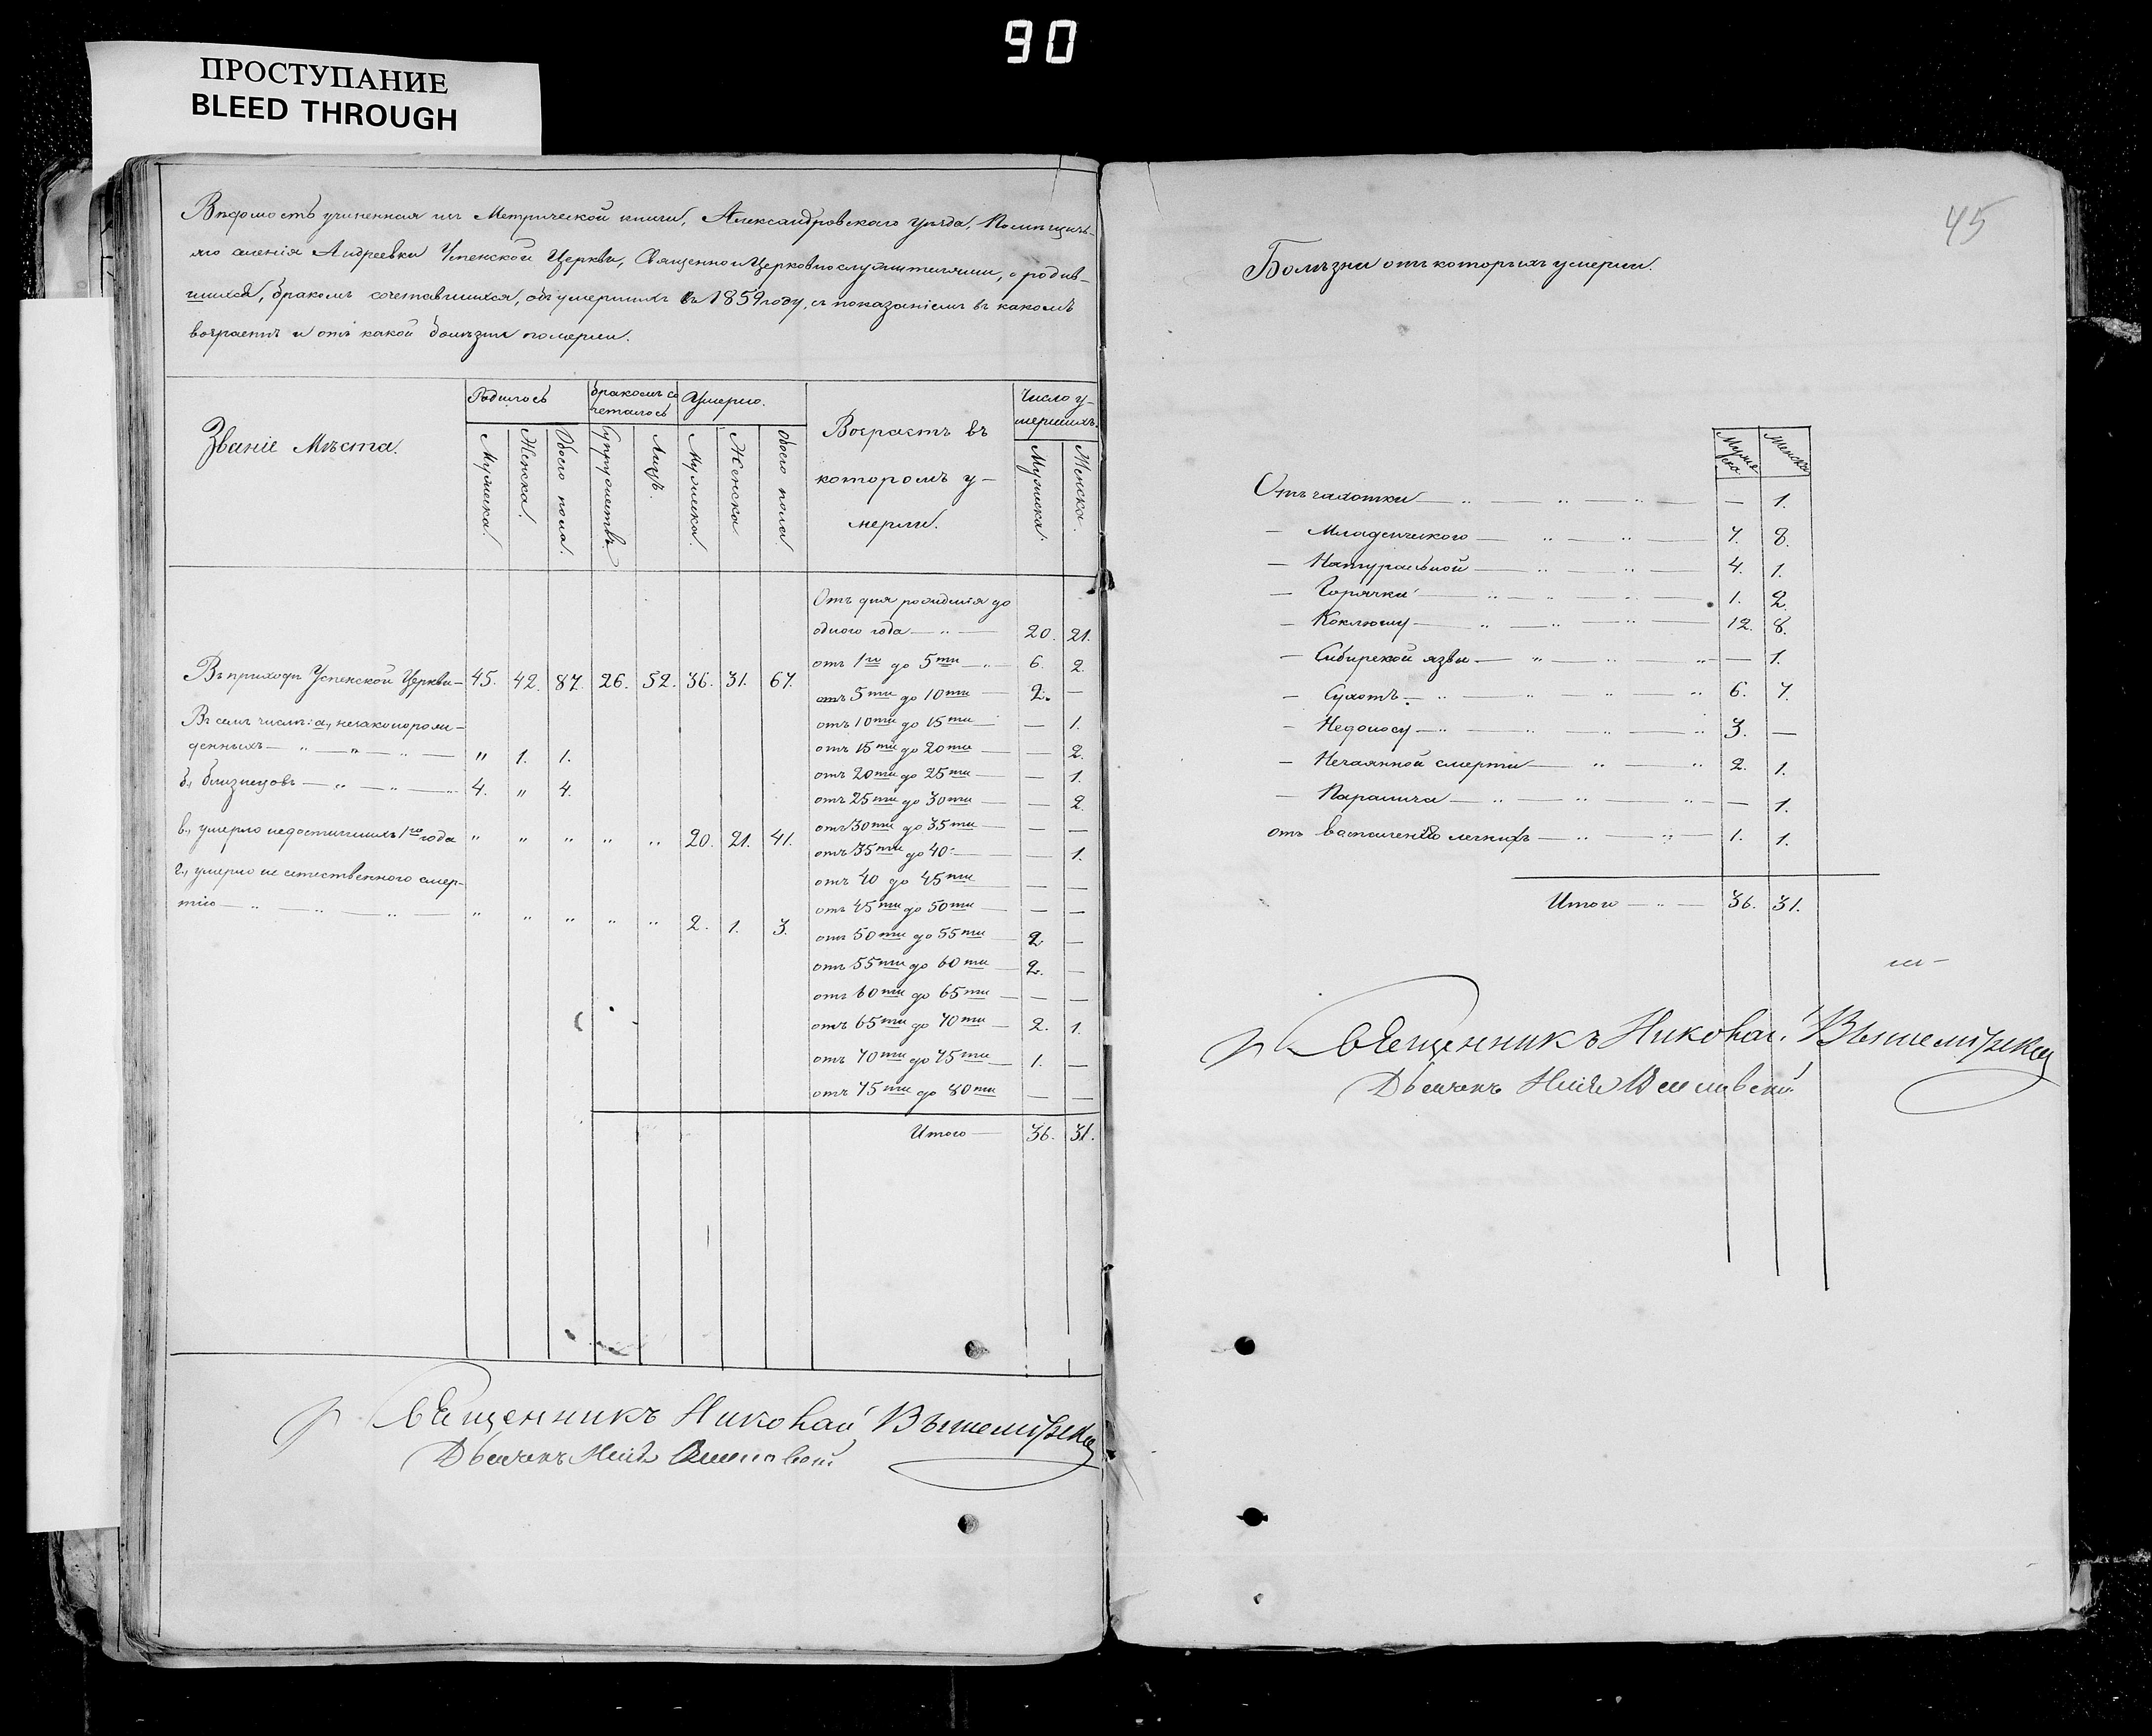 90
ПРОСТУПАНИЕ
BLEED THROUGH
Вѣдомость учиненная изъ Метрической книги, Александровскаго уѣзда, Помѣщичь-
яго селенія Андреевки Успенской Церкви, Священноицерковнослужителями, о родив-
шихся, бракомъ сочетавшихся, обумершихъ въ 1859 году, съ показаніемъ въ какомъ
возрастѣ и отъ какой болѣзни померли.
Званіе Мѣста.
Родилось
бракомъ со
четалось
Умерло.
Возрастъ въ
которомъ у-
мерли.
Число у-
мершихъ.
Мужеска.
Женска.
Обоего пола.
Супружествъ.
Лицъ.
Мужеска.
Женска
Обоего пола.
Мужеска.
Женска.
Отъ дня рожденія до
одного года — „ — 20. 21.
отъ 1го до 5ти — „ — 6. 2.
Въ приходѣ Успенской Церкви — 45. 42. 87. 26. 52. 36. 31. 67.
отъ 5ти до 10ти — 2. —
Въ семъ числѣ: а., незаконорож-
денныхъ — „ — „ — „ — „ 1. 1.
отъ 10ти до 15ти — — 1.
отъ 15ти до 20ти — — 2.
отъ 20ти до 25ти — — 1.
б., близнецовъ — „ — „ — „ 4. „ 4.
отъ 25ти до 30ти — — 2.
в., умерло недостигшихъ 1го года „ „ „ „ „ 20. 21. 41.
отъ 30ти до 35ти — —
отъ 35ти до 40. — — 1.
г., умерло не естественного смер-
тію — „ — „ — „ — „ „ „ „ „ 2. 1. 3.
отъ 40 до 45ти — —
отъ 45ти до 50ти — — —
отъ 50ти до 55ти — 2. —
отъ 55ти до 60ти — 2. —
отъ 60ти до 65ти — — —
отъ 65ти до 70ти — 2. 1.
отъ 70ти до 75ти — 1. —
отъ 75ти до 80ти — —
Итого — 36. 31.
Священникъ Николай
Дьячекъ
45
Болѣзни отъ которыхъ умерли.
Мужеска
Женска
Отъ чахотки — „ — „ — „ — — 1.
— Младенческого — „ — „ — 7. 8.
— Натуральной — „ — „ — 4. 1.
— Горячки — „ — „ — „ — 1. 2.
— Коклюшу — „ — „ — „ — 12. 8.
— Сибирской язвы — „ — „ — „ — 1.
— Сухотъ — „ — „ — „ 6. 7.
— Недоносу — „ — „ — „ — „ 3. —
— Нечаянной смерти — „ — „ 2. 1.
— Паралича — „ — „ — „ — — 1.
отъ воспаленія легкихъ — „ — „ — 1. 1.
Итого — „ — 36. 31.
Священникъ Николай
Дьячекъ